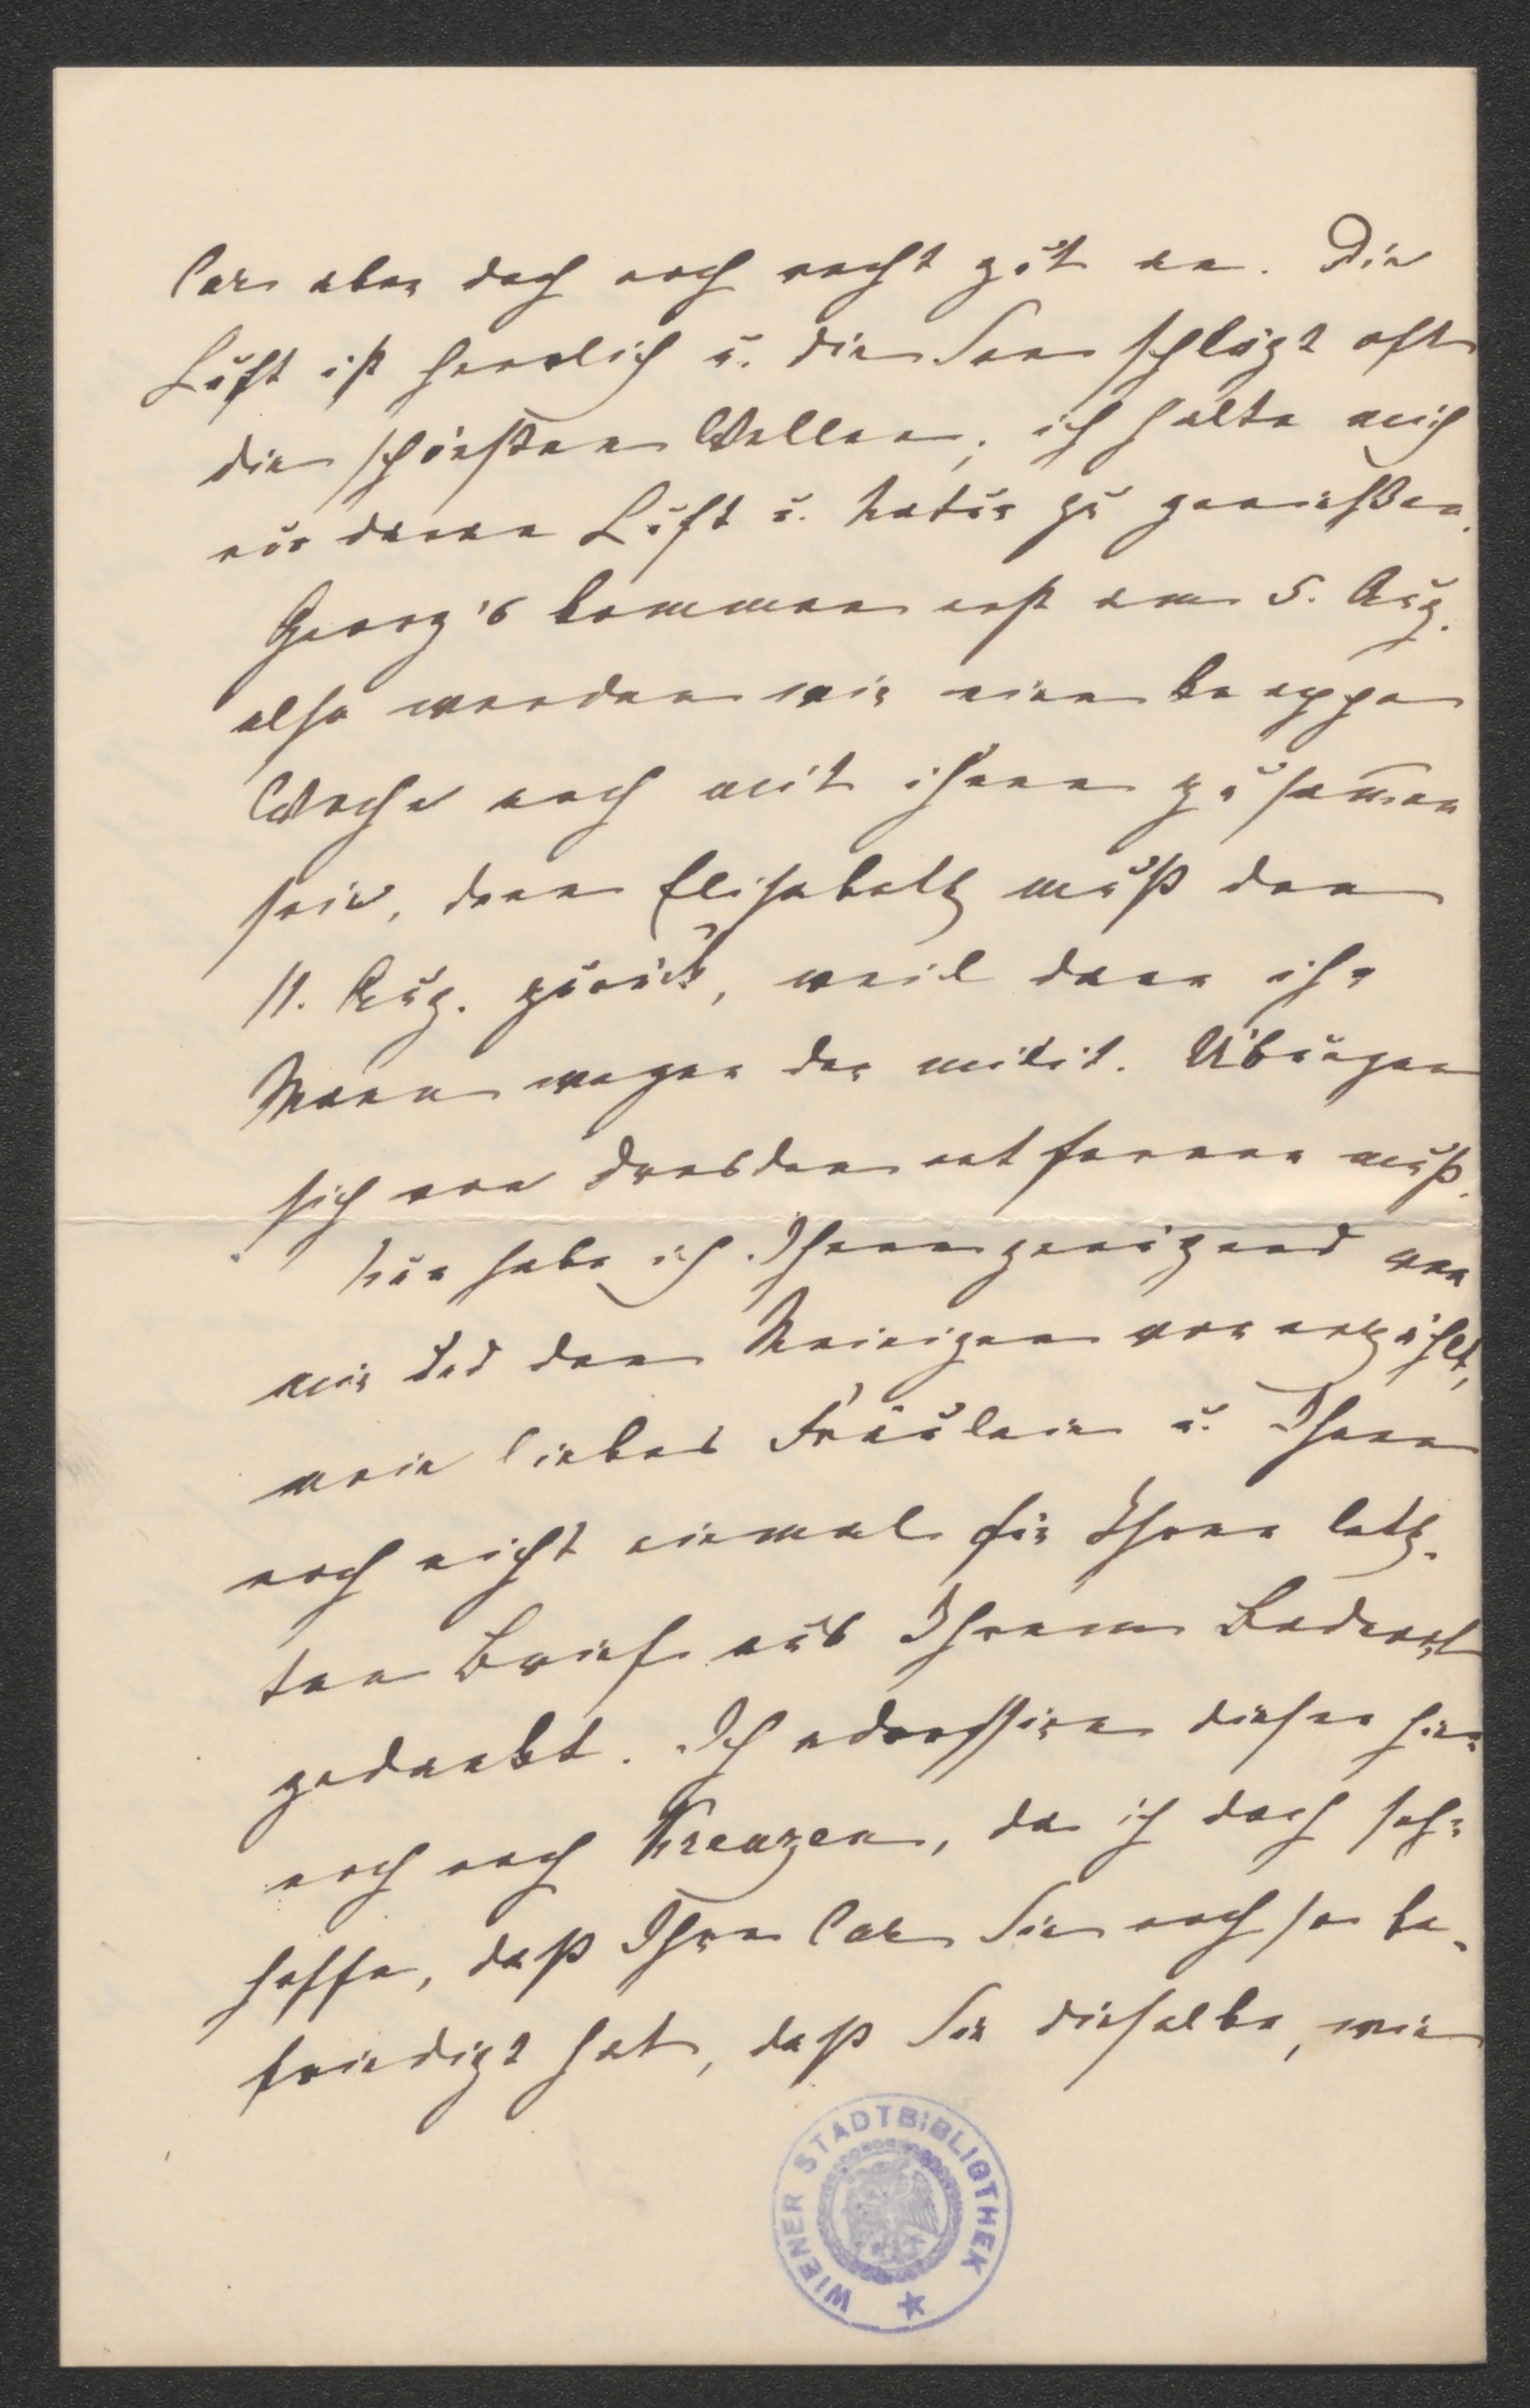 Cur aber doch noch recht gut an. Die
Luft ist herrlich u. die See schlägt oft
die schönsten Wellen, ich halte mich
nur daran Luft u. Natur zu genießen.
Georg's kommen erst am 5. Aug.
also werden wir eine knappe
Woche noch mit ihnen zusam̅en
sein, denn Elisabeth muß den
11. Aug. zurück, weil dann ihr
Mann wegen der milit. Übungen
sich von Dresden entfernen muß.
Nun habe ich Ihnen genügend von
mir und den Meinigen vor erzählt,
mein liebes Fräulein u. Ihnen
noch nicht einmal für Ihren letz-
ten Brief aus Ihrem Badeort
gedankt. Ich adressire diesen hier
noch nach Kreuzen, da ich doch sehr
hoffe, daß Ihre Cur Sie noch so be-
friedigt hat, daß Sie dieselbe, wie
WIENER STADTBIBLIOTHEK